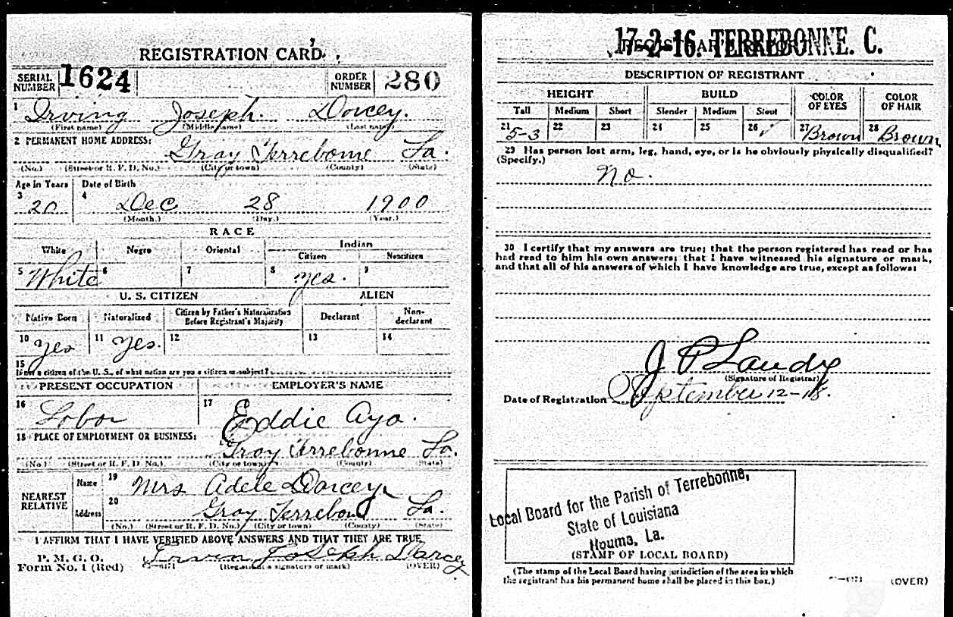 REGISTRATION CARD
SERIAL NUMBER 1624 ORDER NUMBER 280
1 Irving Joseph Darcey.
(First name) (Middle name) (Last name)
2 PERMANENT HOME ADDRESS:
Gray Terrebonne La.
(No.) (Street or R. F. D. No.) (City or town) (County) (State)
Age in Years Date of Birth
3 20 4 Dec 28 1900
(Month.) (Day.) (Year.)
RACE
White Negro Oriental Indian
Citizen Noncitizen
5 White 6 7 8 yes. 9
U. S. CITIZEN ALIEN
Native Born Naturalized Citizen by Father's Naturalization Before Registrant's Majority Declarant Non-declarant
10 yes 11 yes. 12 13 14
15 If not a citizen of the U. S., of what nation are you a citizen or subject?
PRESENT OCCUPATION EMPLOYER'S NAME
16 Lobor 17 Eddie Ayo.
18 PLACE OF EMPLOYMENT OR BUSINESS:
Gray Terrebonne La.
(No.) (Street or R. F. D. No.) (City or town) (County) (State)
NEAREST RELATIVE Name 19 Mrs Adele Darcey
Address 20 Gray Terrebone La.
(No.) (Street or R. F. D. No.) (City or town) (County) (State)
I AFFIRM THAT I HAVE VERIFIED ABOVE ANSWERS AND THAT THEY ARE TRUE
P. M. G. O.
Form No. 1 (Red) Irvin Joseph Darcey
(Registrant's signature or mark) (OVER)
17-2-16. TERREBONNE. C.
DESCRIPTION OF REGISTRANT
HEIGHT BUILD COLOR OF EYES COLOR OF HAIR
Tall Medium Short Slender Medium Stout
21 5-3 22 23 24 25 26 ✓ 27 Brown 28 Brown
29 Has person lost arm, leg, hand, eye, or is he obviously physically disqualified?
(Specify.)
No.
30 I certify that my answers are true; that the person registered has read or has
had read to him his own answers; that I have witnessed his signature or mark,
and that all of his answers of which I have knowledge are true, except as follows:
J P Landry
(Signature of Registrar)
Date of Registration September 12-18.
Local Board for the Parish of Terrebonne,
State of Louisiana
Houma, La.
(STAMP OF LOCAL BOARD)
(The stamp of the Local Board having jurisdiction of the area in which
the registrant has his permanent home shall be placed in this box.)
(OVER)